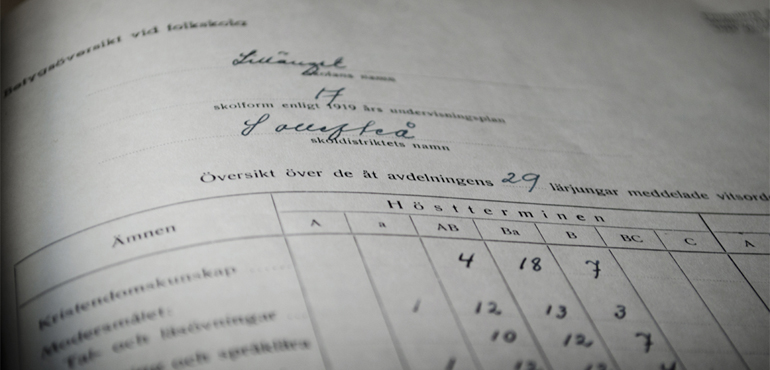 Betygsöversikt vid folkskola
Lillänget
skolans namn
17
skolform enligt 1919 års undervisningsplan
Sollefteå
skoldistriktets namn
Översikt över de åt avdelningens 29 lärjungar meddelade vitsord
Höstterminen
Ämnen A a AB Ba B BC C A
Kristendomskunskap 4 18 7
Modersmålet: 1 12 13 3
Tal- och läsövningar 10 12 7
och språklära